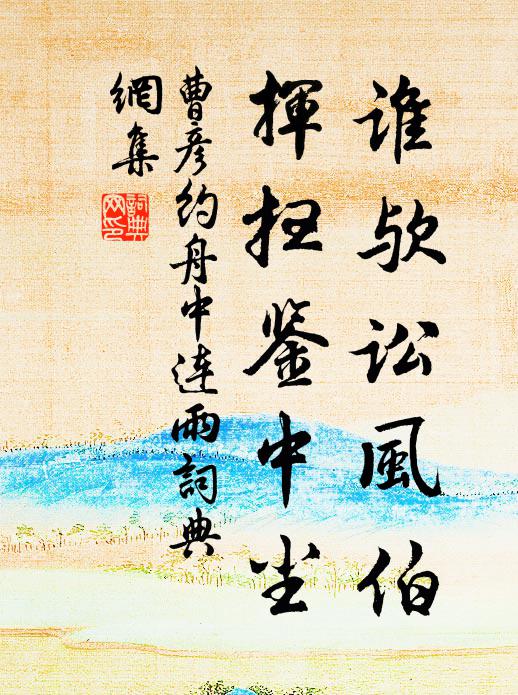 谁欤讼風伯
揮扫鉴中尘
曹彦约舟中連雨詞典
網集
詞典
网印